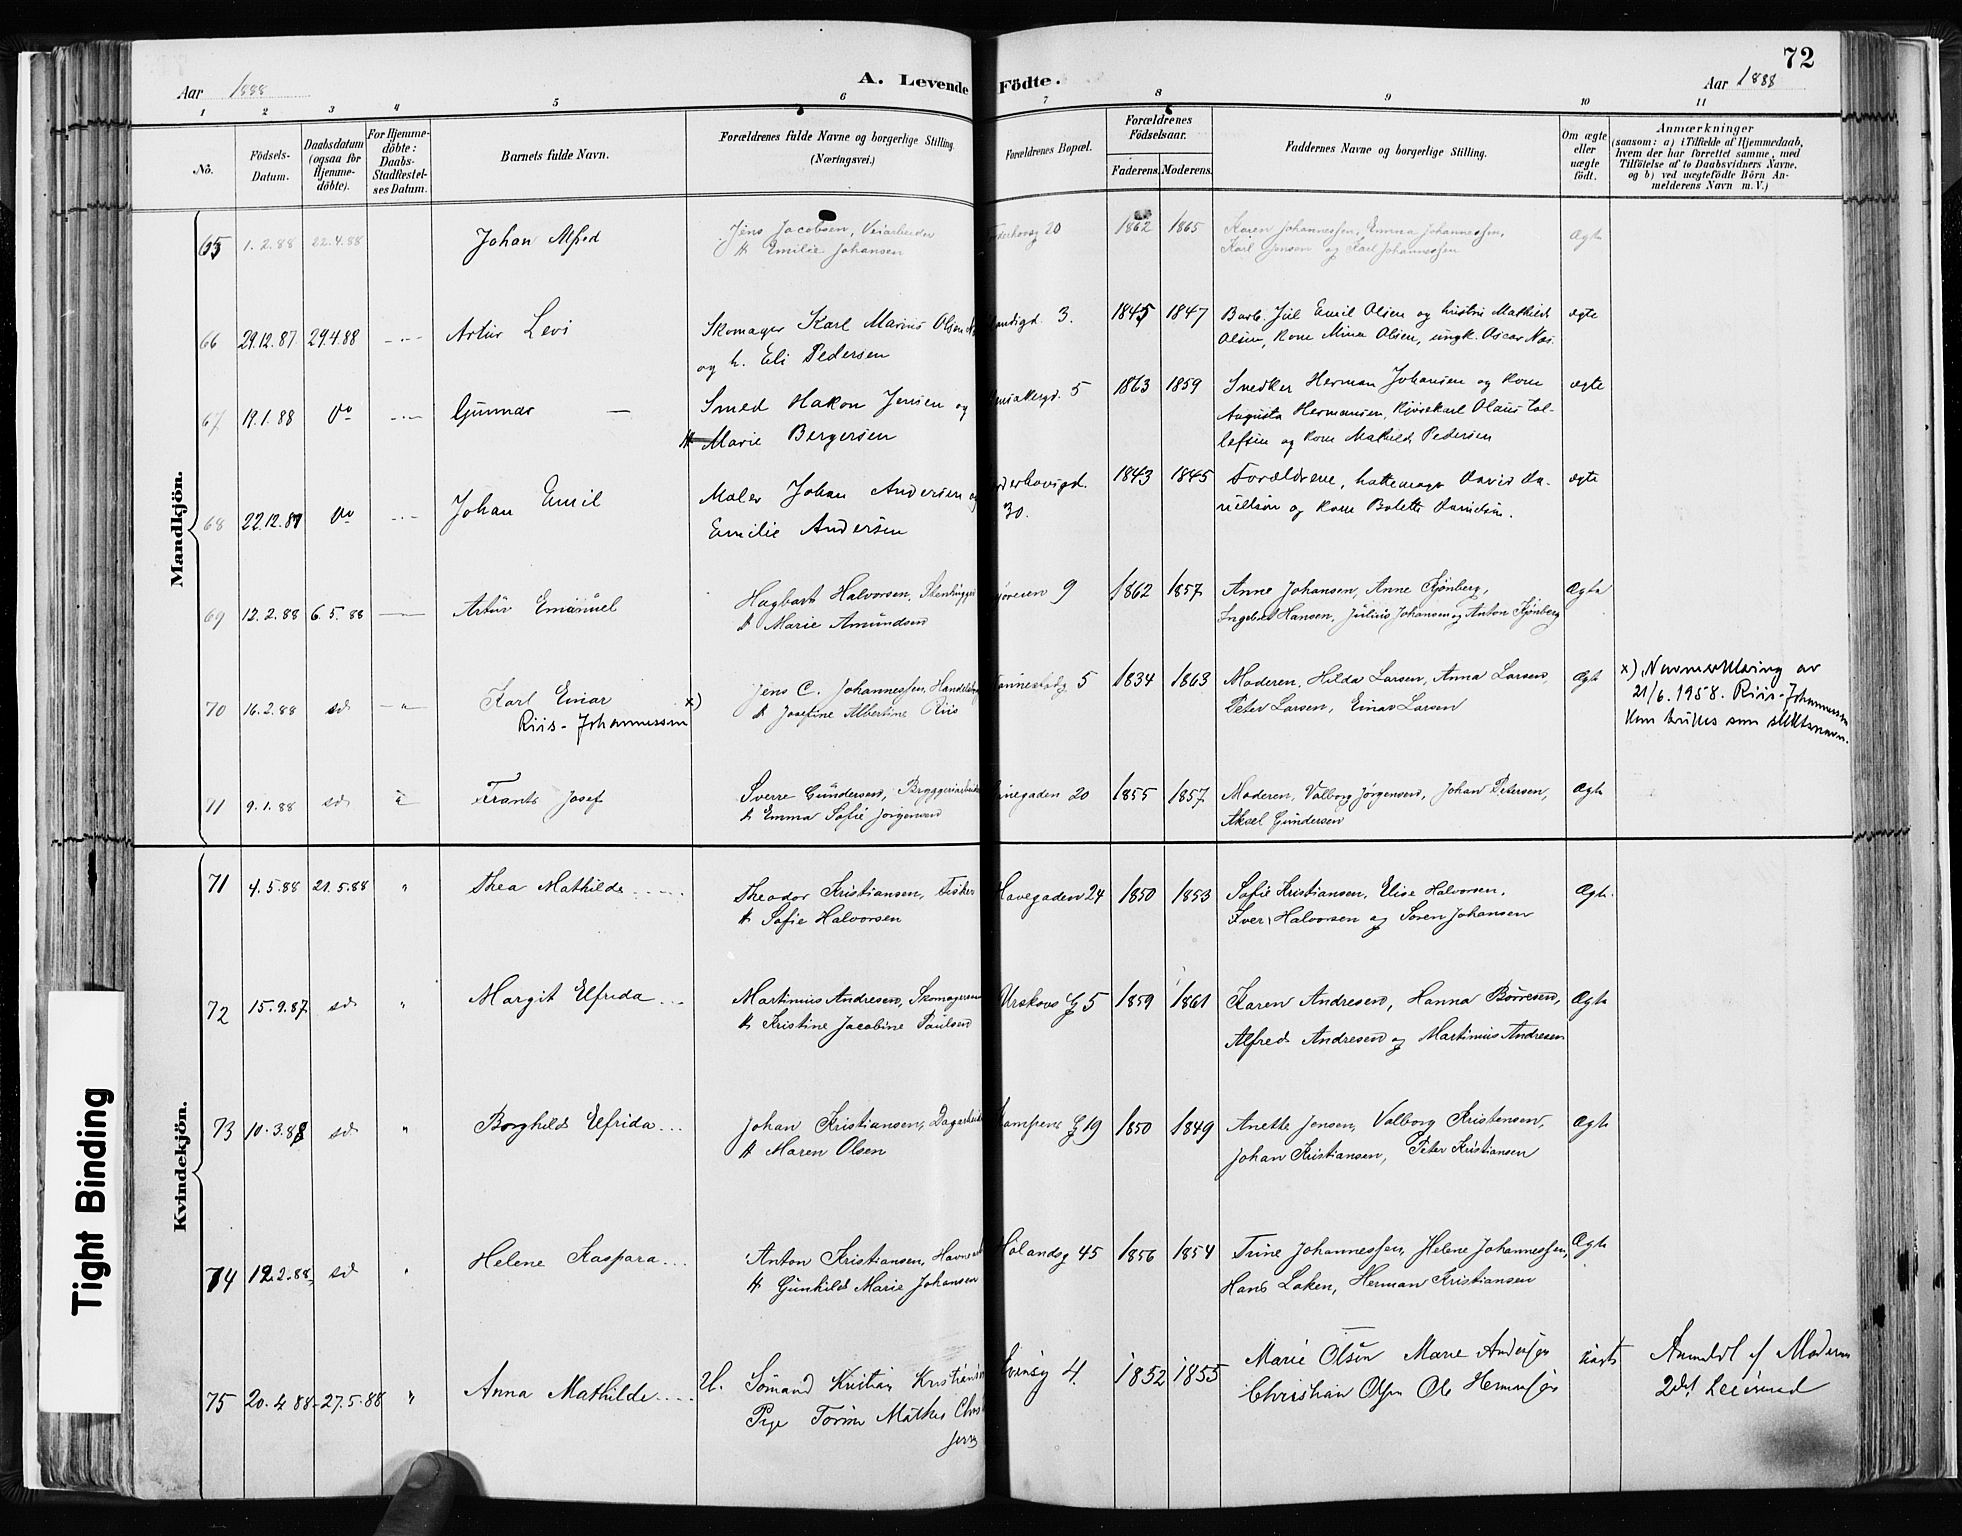 72
Aar 1888 A. Levende Födte. Aar 1888
1 2 3 4 5 6 7 8 9 10 11
No.
Födsels-Datum.
Daabsdatum (ogsaa for Hjemme-döbte).
For Hjemme-döbte: Daabs-Stadfæstel-ses Datum.
Barnets fulde Navn.
Forældrenes fulde Navne og borgerlige Stilling (Næringsvei.)
Forældrenes Bopæl.
Forældrenes Födselsaar.
Faderens. Moderens.
Faddernes Navne og borgerlige Stilling.
Om ægte eller uægte födt.
Anmærkninger
(saasom: a) i Tilfælde af Hjemmedaab, hvem der har forrettet samme, med Tilföielse af to Daabsvidners Navne, og b) ved uægtefödte Börn An-melderens Navn m. V.)
Mandkjön.
65 1.2.88 22.4.88 Johan Alfred Jens Jacobsen, Veiarbeider 20 1862 1865 Karen Johannessen, Emma Johannessen, Ægte
H Emilie Johansen Karl Jensen og Karl Johannessen
66 29.12.87 29.4.88 Artur Levi Skomager Karl Marius Olsen 3. 1845 1847 Barb. Jul Emil Olsen og Mathilde ægte
og h. Eli Pedersen Olsen, Kone Mina Olsen, ungk. Oscar
67 19.1.88 Do Gunnar — Smed Hakon Jensen og 5 1863 1859 Snedker Herman Johansen og Kone ægte
H Marie Bergersen Augusta Hermansen, Kjørekarl Olaus Tol-
lefsen og Kone Mathild Pedersen
68 22.12.87 Do Johan Emil Maler Johan Andersen og 1843 1845 Forældrene, hattemager David Da- ægte
Emilie Andersen 30. nielson og Kone Bolette
69 12.2.88 6.5.88 Artur Emanuel Hagbart Halvorsen, 9 1862 1857 Anne Johansen, Anne Kjønberg, Ægte
H Marie Amundsen Ingeborg Hansen, Julius Johansen og Anton Kjønberg
70 16.2.88 sd Karl Einar Jens C. Johannessen, 5 1834 1863 Moderen, Hilda Larsen, Anna Larsen, Ægt
Riis-Johannessen x) H Josefine Albertine Riis Peter Larsen, Einar Larsen
x) Navneerklæring av
21/6.1958. Riis-Johannessen
kan brukes som slektsnavn.
71 9.1.88 sd Frants Josef Sverre Gundersen, Bryggeriarbeider 20 1855 1857 Moderen, Valborg Jørgensen, Johan Petersen, Ægte
H Emma Sofie Jørgensen Aksel Gundersen
Kvindekjön.
71 4.5.88 21.5.88 " Thea Mathilde Theodor Kristiansen, Fisker Havegaden 24 1850 1853 Sofie Kristiansen, Elise Halvorsen, Ægte
H Sofie Halvorsen Iver Halvorsen og Soren Johansen
72 15.9.87 sd " Margit Elfrida Martinius Andresen, Skomagersvend Urskovs G 5 1859 1861 Karen Andresen, Hanna Børresen, Ægte
H Kristine Jacobine Paulsen Alfred Andresen og Martinius Andresen
73 10.3.88 sd " Borghild Elfrida Johan Kristiansen, Dagarbeider Kampens G 19 1850 1849 Anette Jensen, Valborg Kristensen, Ægte
H Maren Olsen Johan Kristiansen, Peter Kristiansen
74 12.2.88 sd " Helene Kaspara Anton Kristiansen, Hølandsg 45 1856 1854 Trine Johannessen, Helene Johannessen, Ægte
H Gunhild Marie Johansen Hans Loken, Herman Kristiansen
75 20.4.88 27.5.88 " Anna Mathilde U. Sømand Kristian Kristiansen 4. 1852 1855 Marie Olsen Marie Andersen Uægte
Pige Christian Olsen Ole Hermansen
Anmeldt af Moderen
Tight Binding